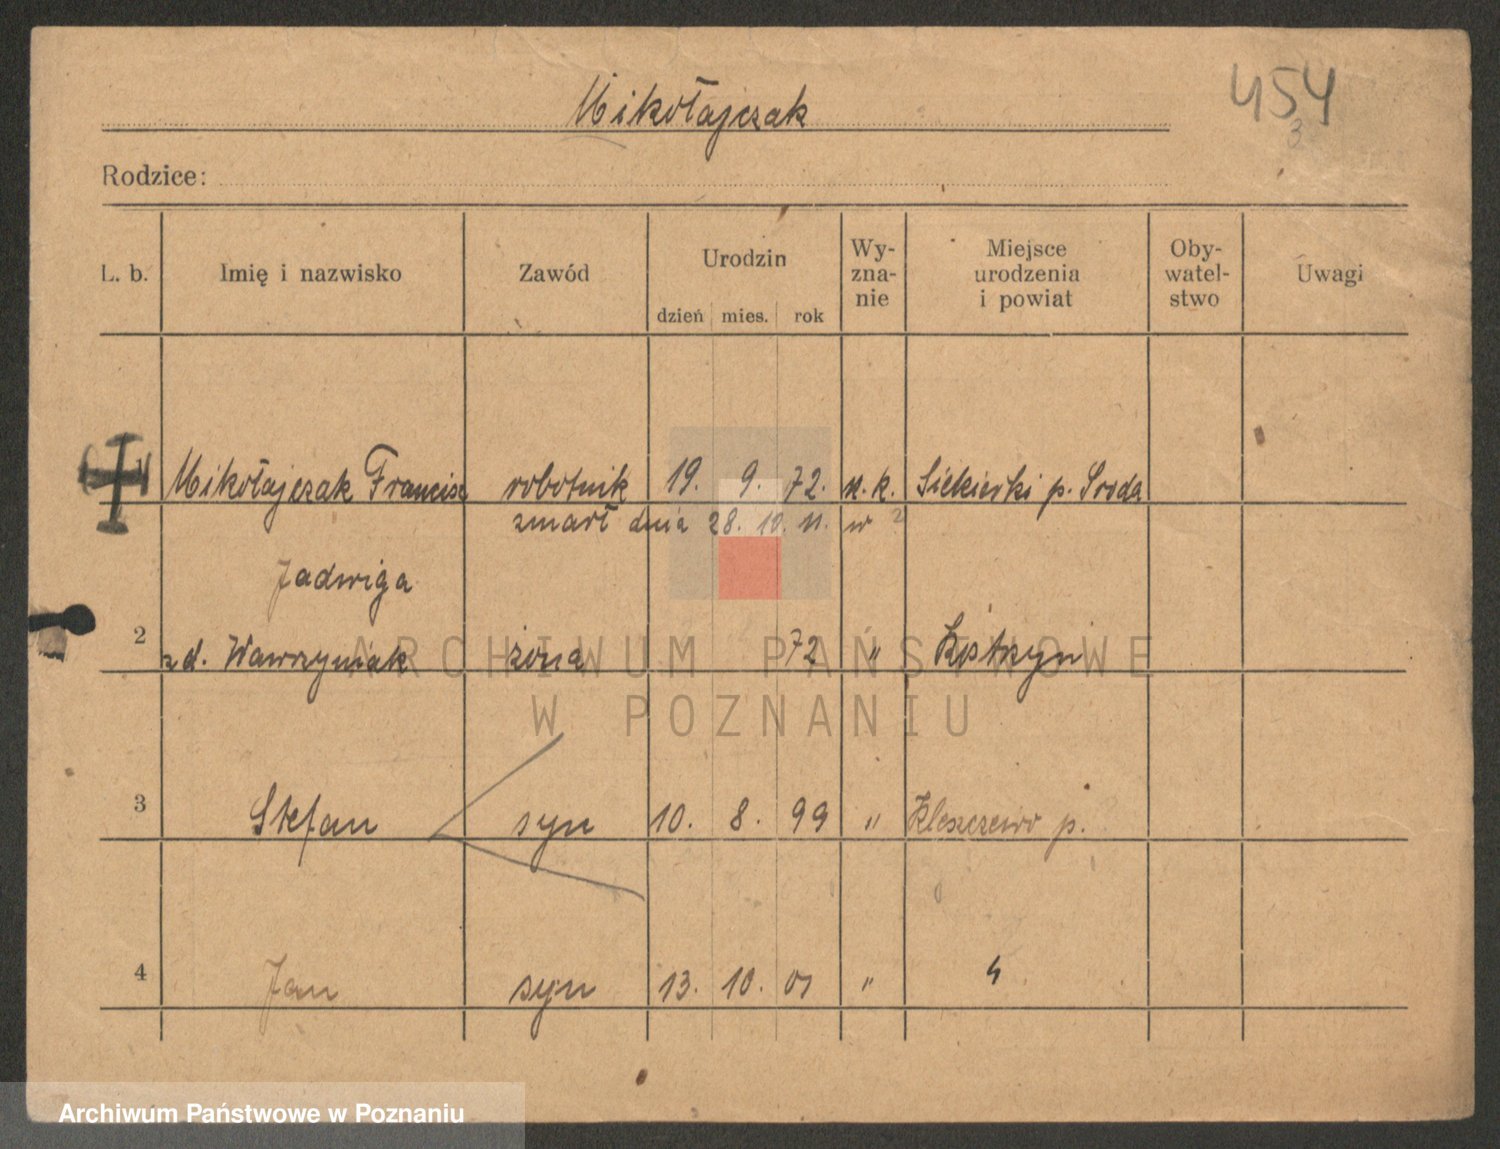 Mikołajczak
454
3
Rodzice:
L. b. Imię i nazwisko Zawód Urodzin dzień mies. rok Wy- zna- nie Miejsce urodzenia i powiat Oby- watel- stwo Uwagi
1 Mikołajczak Francisz robotnik 19. 9. 72. r. k. Siekierki p. Środa
zmarł dnia 28. 10. 11. w ?
Jadwiga
2 zd. Wawrzyniak żona 72 " Kostrzyn
3 Stefan syn 10. 8. 99 " Kleszczewo p.
4 Jan syn 13. 10. 01 " "
ARCHIWUM PAŃSTWOWE
W POZNANIU
Archiwum Państwowe w Poznaniu